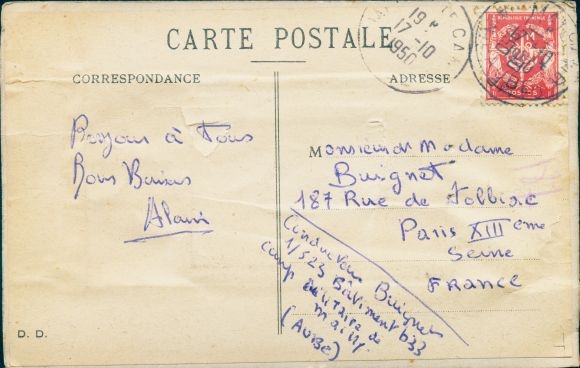 CARTE POSTALE
CORRESPONDANCE
ADRESSE
19
17-10
1950
RÉPUBLIQUE FRANÇAISE
F M
POSTES
Bonjour à Tous
Bons Baisers
Alain
Monsieur Madame
Buignet
187 Rue de Tolbiac
Paris XIII eme
Seine
FRANCE
Conducteur Buignet
1/523 Bâtiment b33
Camp Militaire de
Mailly
(AUBE)
D. D.